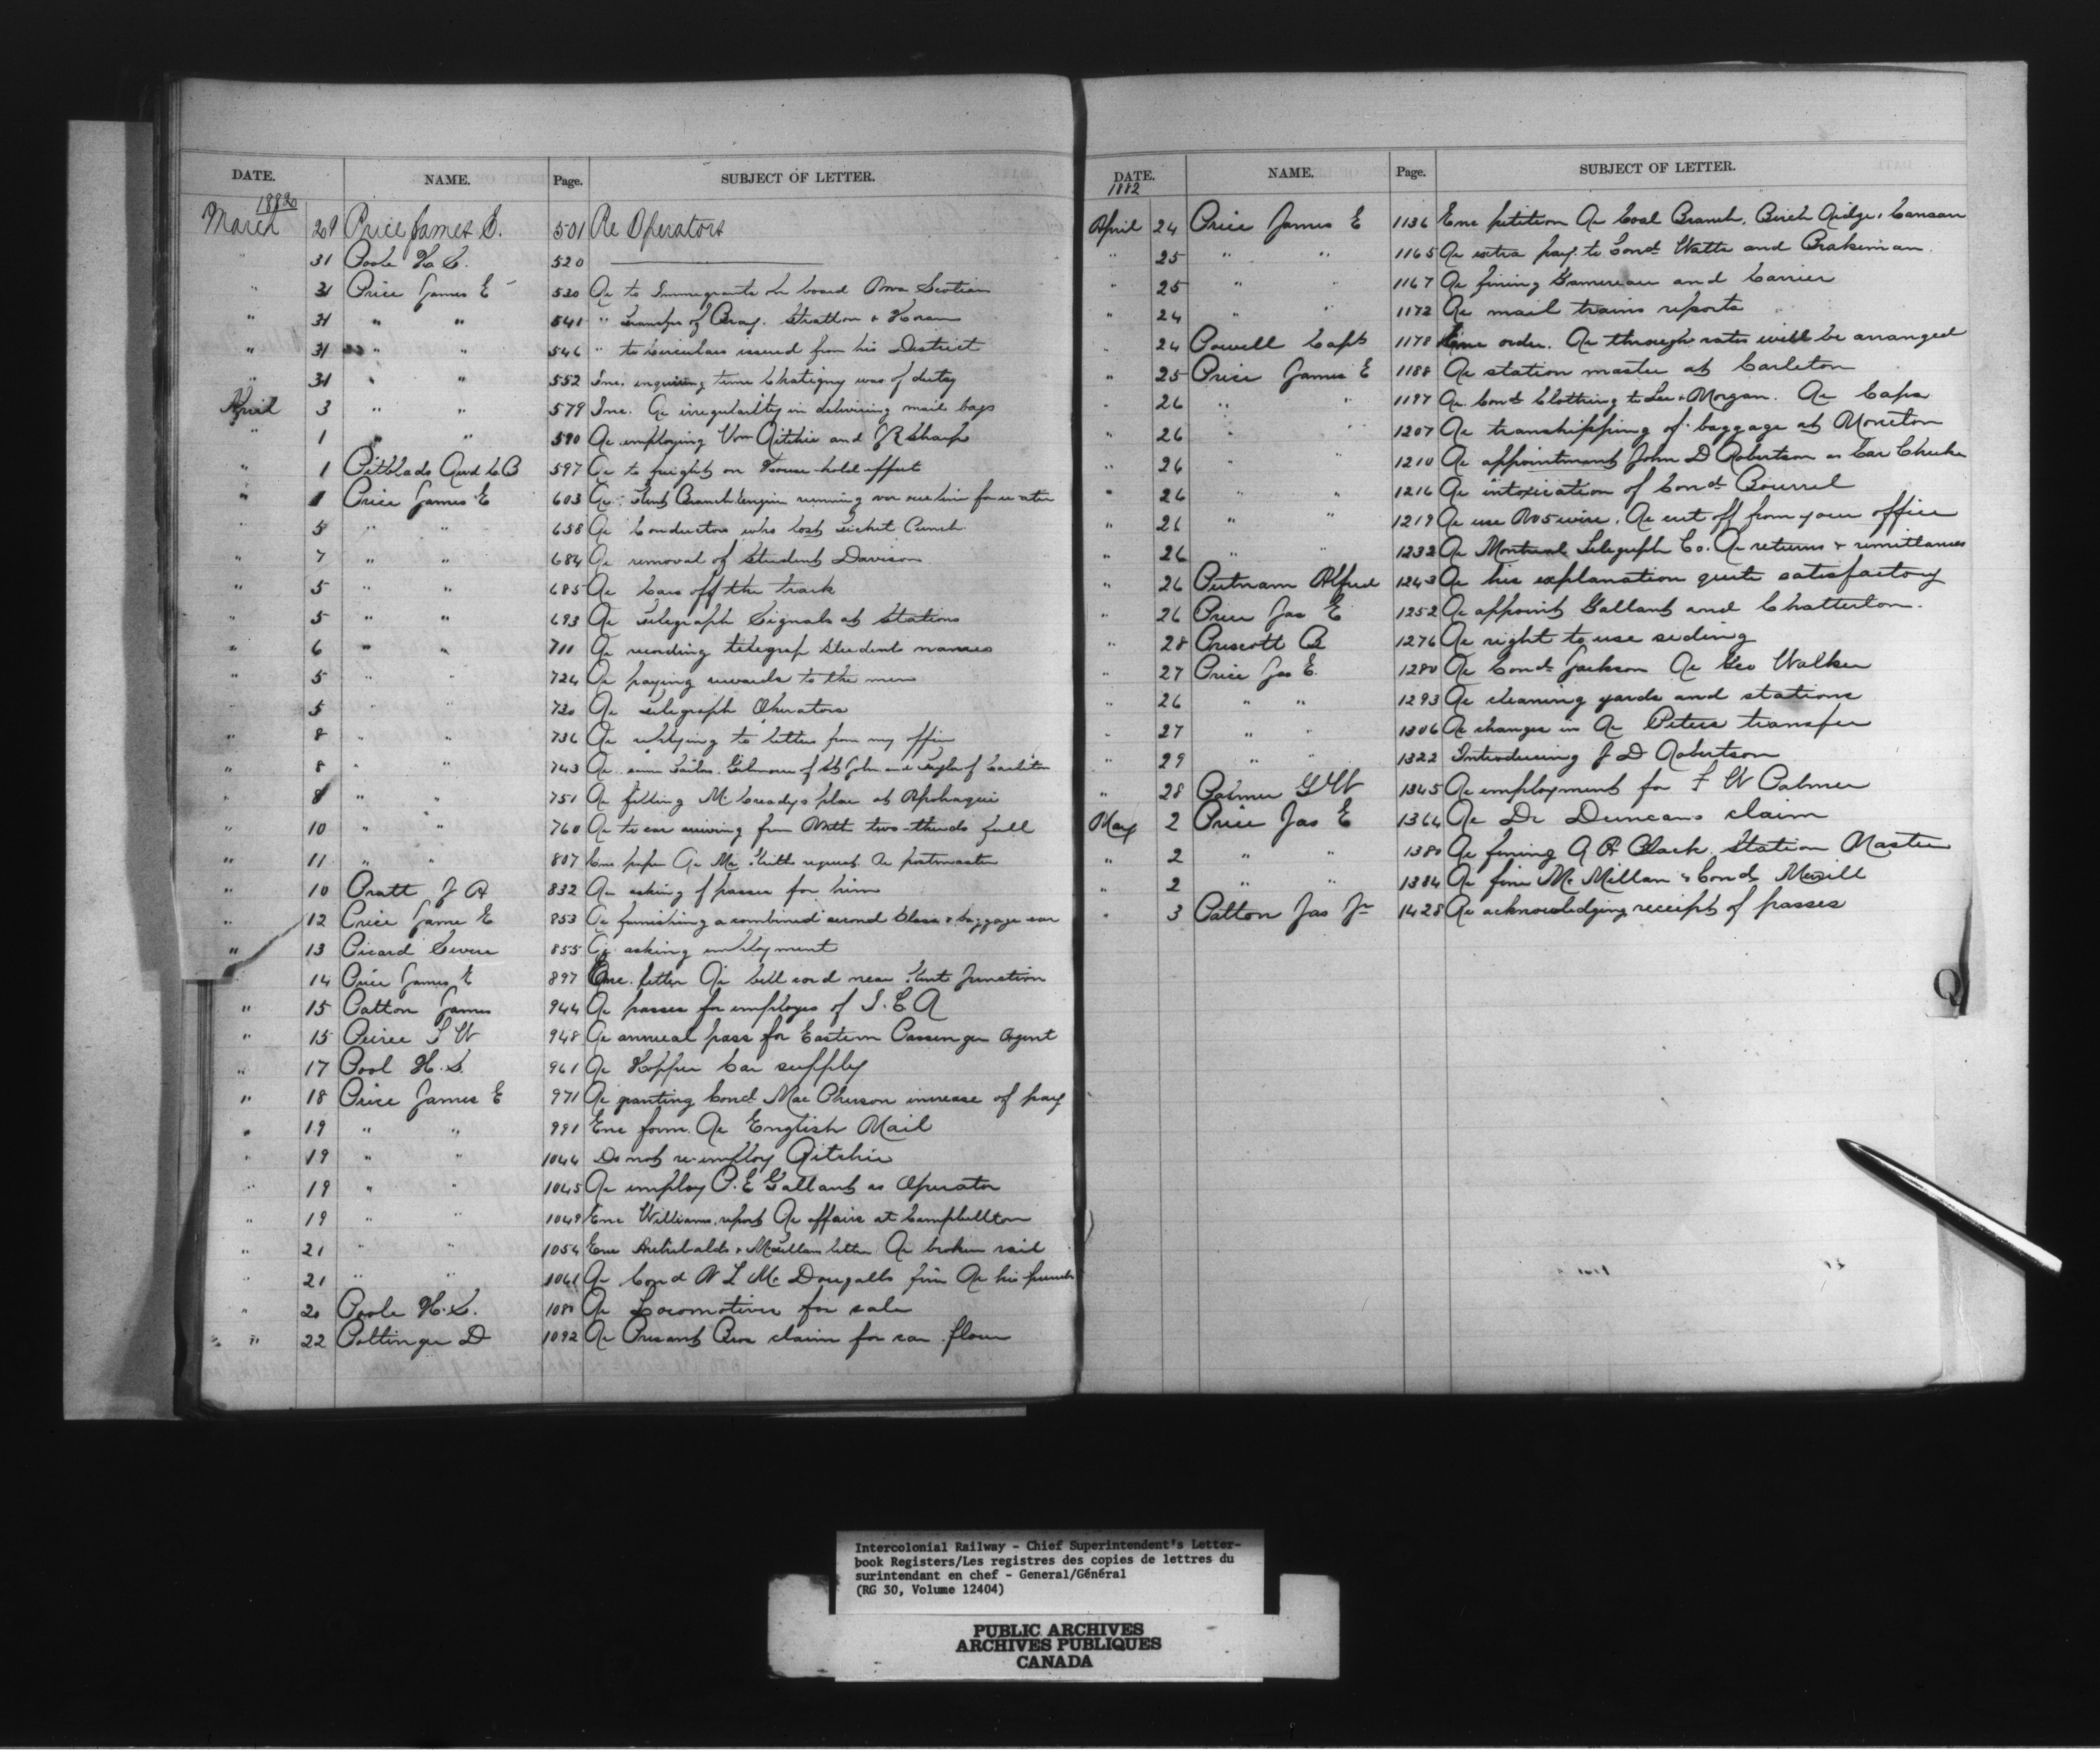 DATE. NAME. Page. SUBJECT OF LETTER.
1882
March 29 Price James E. 501 Re Operators
" 31 Poole H. S. 520
" 31 Price James E 530 Re to Immigrants on board Nova Scotian
" 31 " " 541 " transfer of Bray. Stratton & Horan
" 31 " " 546 " to circulars issued from his District
" 31 " " 552 Inc. inquiring time Chatigny was of duty
April 3 " " 579 Inc. Re irregularity in delivering mail bags
" 1 " " 590 Re employing Wm Ritchie and J R Sharp
" 1 Pitblado And C B 597 Re to freight on House-hold effects
" 1 Price James E 603 Re Kent Branch Engine running over our line for water
" 5 " " 658 Re Conductors who lost Ticket Punch
" 7 " " 684 Re removal of Student Davison
" 5 " " 685 Re Cars off the track
" 5 " " 693 Re Telegraph Signals at Stations
" 6 " " 711 Re sending telegraph Student names
" 5 " " 724 Re paying rewards to the men
" 5 " " 730 Re Telegraph Operators
" 8 " " 736 Re replying to letters from my office
" 8 " " 743 Re some Tailor. Gilmour of St John and Taylor of Carleton
" 8 " " 751 Re filling McCreadys place at Apohaqui
" 10 " " 760 Re to car arriving from North two-thirds full
" 11 " " 807 Enc. paper Re Mr Keiths request Re postmaster
" 10 Pratt J A 832 Re asking of passes for him
" 12 Price Jame E 853 Re furnishing a combined second Class & baggage car
" 13 Picard Severe 855 Re asking employment
14 Price James E 897 Enc. letter Re bell cord near Kent Junction
" 15 Patton James 944 Re passes for employes of I. C R
" 15 Peirce S W 948 Re annual pass for Eastern Passenger Agent
" 17 Pool H. S. 961 Re Hopper Car supply
" 18 Price James E 971 Re granting Cond MacPherson increase of pay
" 19 " " 991 Enc form. Re English Mail
" 19 " " 1044 Do not re-employ Ritchie
" 19 " " 1045 Re employ P. E Gallant as Operator
" 19 " " 1049 Enc Williams, report Re affairs at Campbellton
" 21 " " 1054 Enc Archibalds & McLellans letter Re broken rail
" 21 " " 1061 Re Cond N L McDougalls fine Re his punch
" 20 Poole H. S. 1080 Re Locomotives for sale
" 22 Pottinger D 1092 Re Presant Bros claim for car flour
DATE. NAME. Page. SUBJECT OF LETTER.
1882
April 24 Price James E 1136 Enc petition Re Coal Branch, Birch Ridge, Canaan
" 25 " " 1165 Re extra pay to Cond Watts and Brakeman
" 25 " " 1167 Re fining Gamereau and Carrier
" 24 " " 1172 Re mail trains reports
" 24 Powell Capt 1178 Enc order. Re through rates will be arranged
" 25 Price James E 1188 Re station master at Carleton
" 26 " " 1197 Re Cond Clothing to Lee & Morgan. Re Caps
" 26 " " 1207 Re transhipping of baggage at Moncton
" 26 " 1210 Re appointment John D Robertson as Car Checker
" 26 " " 1216 Re intoxication of Cond Bourrel
" 26 " " 1219 Re use No 5 wire. Re cut off from your office
" 26 " " 1232 Re Montreal Telegraph Co. Re returns & remittances
" 26 Putnam Alfred 1243 Re his explanation quite satisfactory
" 26 Price Jas E 1252 Re appoint Gallant and Chatterton.
" 28 Prescott B 1276 Re right to use siding
" 27 Price Jas E. 1280 Re Cond Jackson Re Geo Walker
" 26 " " 1293 Re cleaning yards and stations
" 27 " " 1306 Re changes in Re Peters transfer
" 29 " " 1322 Introducing J D Robertson
" 28 Palmer G W 1345 Re employment for F W Palmer
May 2 Price Jas E 1364 Re Dr Duncans claim
" 2 " " 1380 Re fining A A Black Station Master
" 2 " " 1384 Re fine McMillan & Cond Merrill
" 3 Patton Jas Jr 1428 Re acknowledging receipt of passes
Q
Intercolonial Railway - Chief Superintendent's Letter-
book Registers/Les registres des copies de lettres du
surintendant en chef - General/Général
(RG 30, Volume 12404)
PUBLIC ARCHIVES
ARCHIVES PUBLIQUES
CANADA